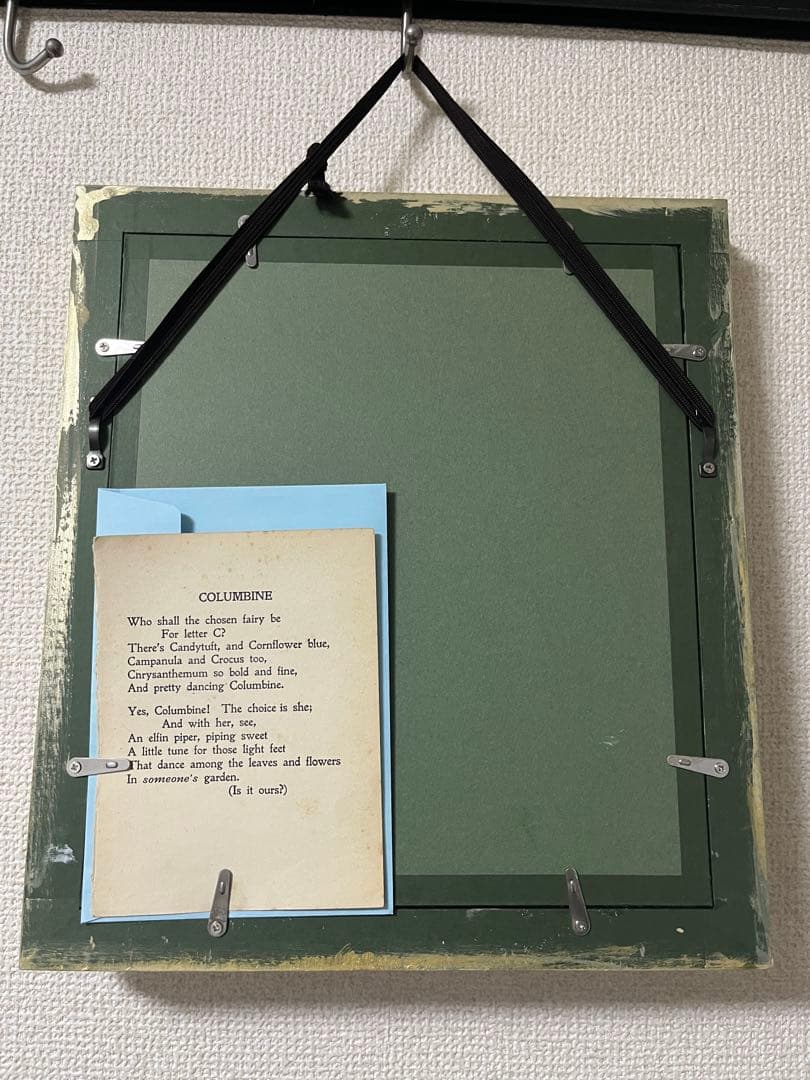 COLUMBINE
Who shall the chosen fairy be
For letter C?
There's Candytuft, and Cornflower blue,
Campanula and Crocus too,
Chrysanthemum so bold and fine,
And pretty dancing Columbine.
Yes, Columbine! The choice is she;
And with her, see,
An elfin piper, piping sweet
A little tune for those light feet
That dance among the leaves and flowers
In someone's garden.
(Is it ours?)